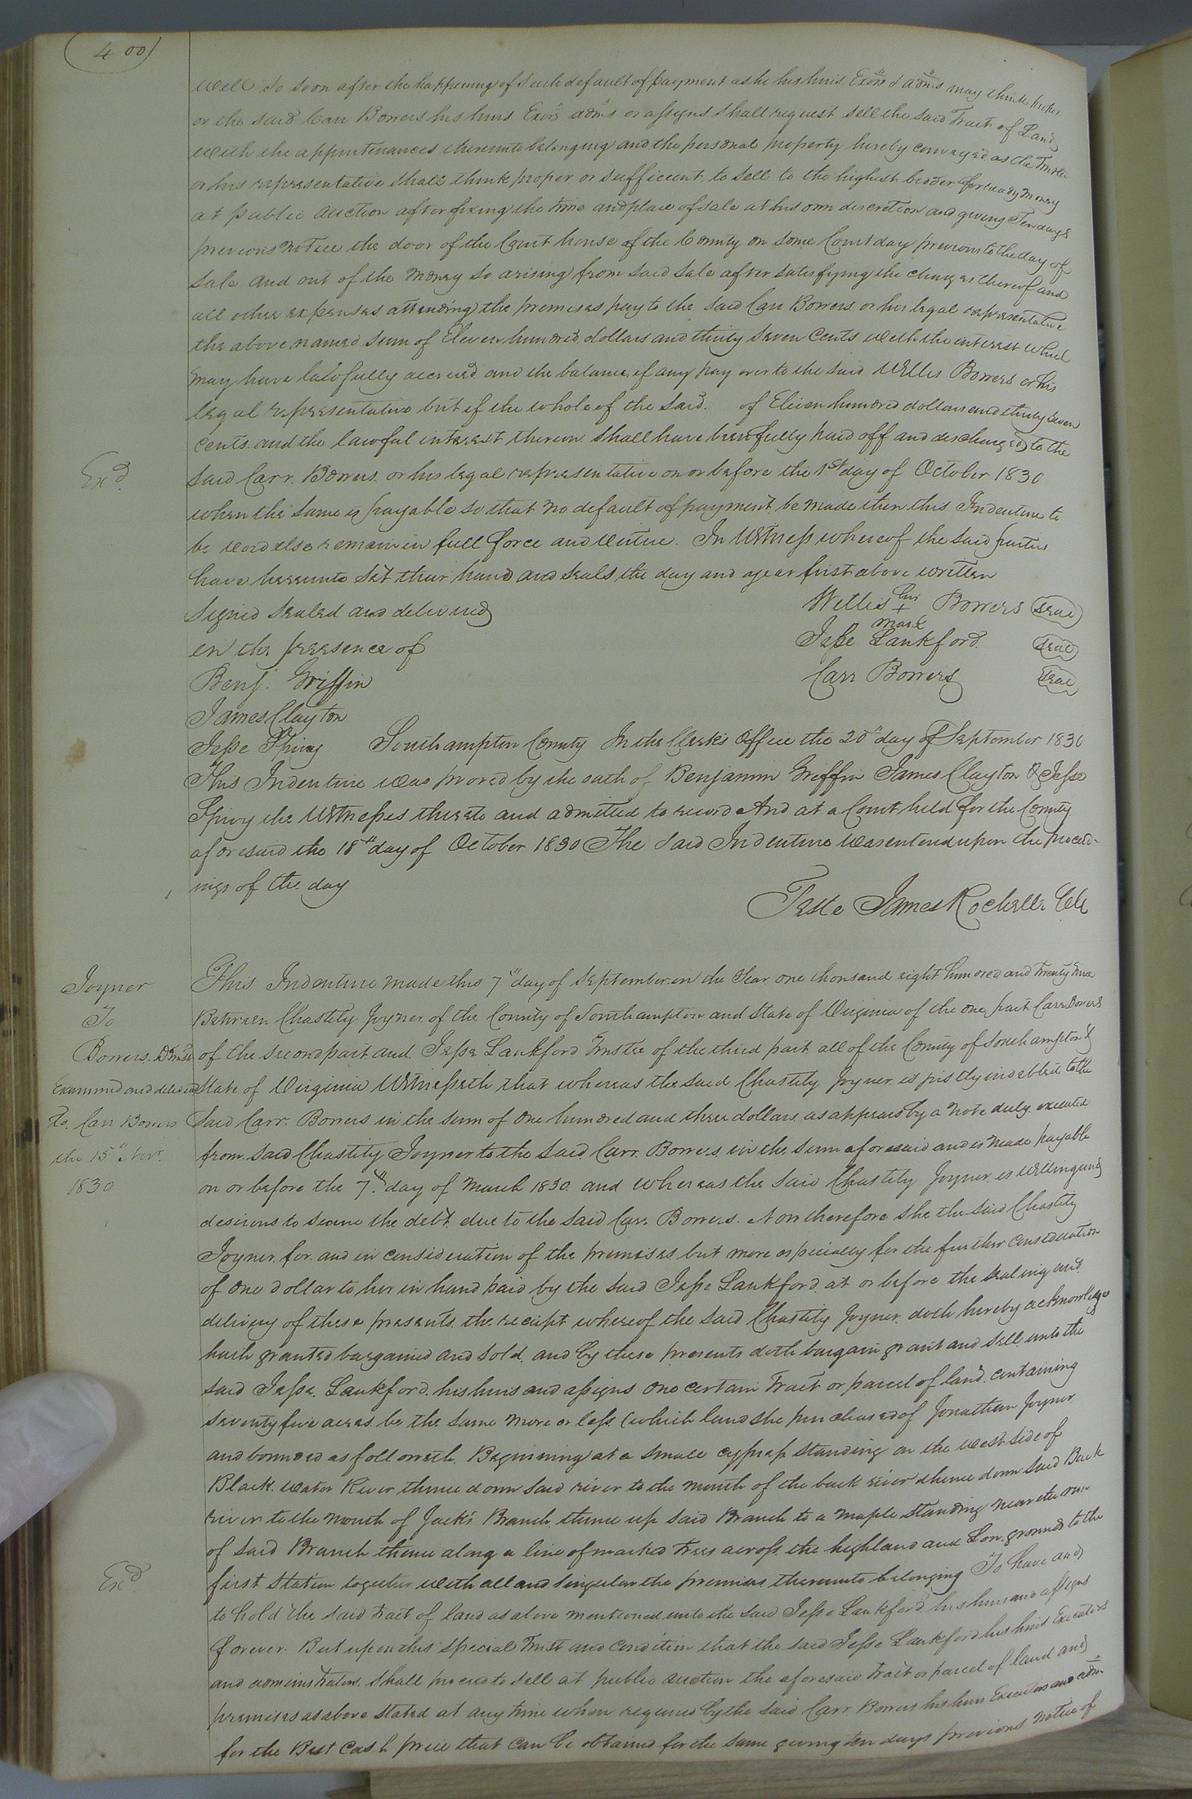 (400)
well so soon after the happening of such default of payment as he his heirs Exors & adms may think proper
or the said Carr Bowers his heirs Exors adms or assigns shall request sell the said Tract of Land
with the appurtenances thereunto belonging and the personal property hereby conveyed as the Trustee
or his representative shall think proper or sufficient to sell to the highest bidder for ready money
at public auction after fixing the time and place of sale at his own discretion and giving Ten days
previous notice the door of the Court house of the County on some Court day previous to the day of
sale and out of the money so arising from said sale after satisfying the charges thereof and
all other expenses attending the premises pay to the said Carr Bowers or his legal representative
the above named sum of Eleven hundred dollars and thirty seven Cents with the interest which
may have lawfully accrued and the balance if any pay over to the said Willis Bowers or his
legal representative but if the whole of the said of Eleven hundred dollars and thirty seven
cents and the lawful interest thereon shall have been fully paid off and discharged to the
Exd.
said Carr Bowers or his legal representative on or before the 1st day of October 1830
when the same is payable so that no default of payment be made then this Indenture to
be void else remain in full force and virtue. In Witness whereof the said parties
have hereunto set their hand and seals the day and year first above written
Signed Sealed and delivered
in the presence of
Benj. Griffin
James Clayton
Jesse Spivy
Willis his + mark Bowers (seal)
Jesse Lankford (seal)
Carr Bowers (seal)
Southampton County In the Clerks Office the 20th day of September 1830
This Indenture was proved by the oath of Benjamin Griffin James Clayton & Jesse
Spivy the Witnesses thereto and admitted to record And at a Court held for the County
aforesaid the 18th day of October 1830 The said Indenture was entered upon the proceed-
ings of the day
Teste James Rochelle Clk
Joyner
To
Bowers. D Trust
Examined and delivered
To Carr Bowers
the 15th Novr.
1830
This Indenture made this 7th day of September in the Year one thousand eight hundred and twenty nine
Between Chastity Joyner of the County of Southampton and State of Virginia of the one part Carr Bowers
of the second part and Jesse Lankford Trustee of the third part all of the County of Southampton &
State of Virginia Witnesseth that whereas the said Chastity Joyner is justly indebted to the
said Carr Bowers in the sum of One hundred and three dollars as appears by a note duly executed
from said Chastity Joyner to the said Carr Bowers in the sum aforesaid and is made payable
on or before the 7th day of March 1830 and whereas the said Chastity Joyner is willing and
desirous to secure the debt due to the said Carr Bowers. Now therefore she the said Chastity
Joyner for and in consideration of the premises but more especially for the further consideration
of one dollar to her in hand paid by the said Jesse Lankford at or before the sealing and
delivery of these presents the receipt whereof the said Chastity Joyner doth hereby acknowledge
hath granted bargained and sold and by these presents doth bargain grant and sell unto the
said Jesse Lankford his heirs and assigns one certain Tract or parcel of land containing
seventy five acres be the same more or less (which land she purchased of Jonathan Joyner
and bounded as followeth. Beginning at a small cypress standing on the west side of
Black water River thence down said river to the mouth of the back river thence down said Back
river to the mouth of Jack's Branch thence up said Branch to a maple standing near the run
of said Branch thence along a line of marked trees across the highland and Low grounds to the
Exd
first station together with all and singular the premises thereunto belonging To have and
to hold the said tract of land as above mentioned unto the said Jesse Lankford his heirs and assigns
forever. But upon this special Trust and condition that the said Jesse Lankford his heirs Executors
and administrators shall proceed to sell at public auction the aforesaid tract or parcel of land and
premises as above stated at any time when required by the said Carr Bowers his heirs Executors and adm
for the Best Cash price that can be obtained for the same giving ten days previous notice of